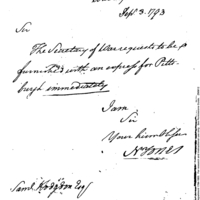 Sept. 3. 1793
Sir
The Secretary of War requests to be
furnished with an express for Pitts
burgh immediately
I am
Sir
Your hum
Wm Jones
Saml Hodgdon Esq